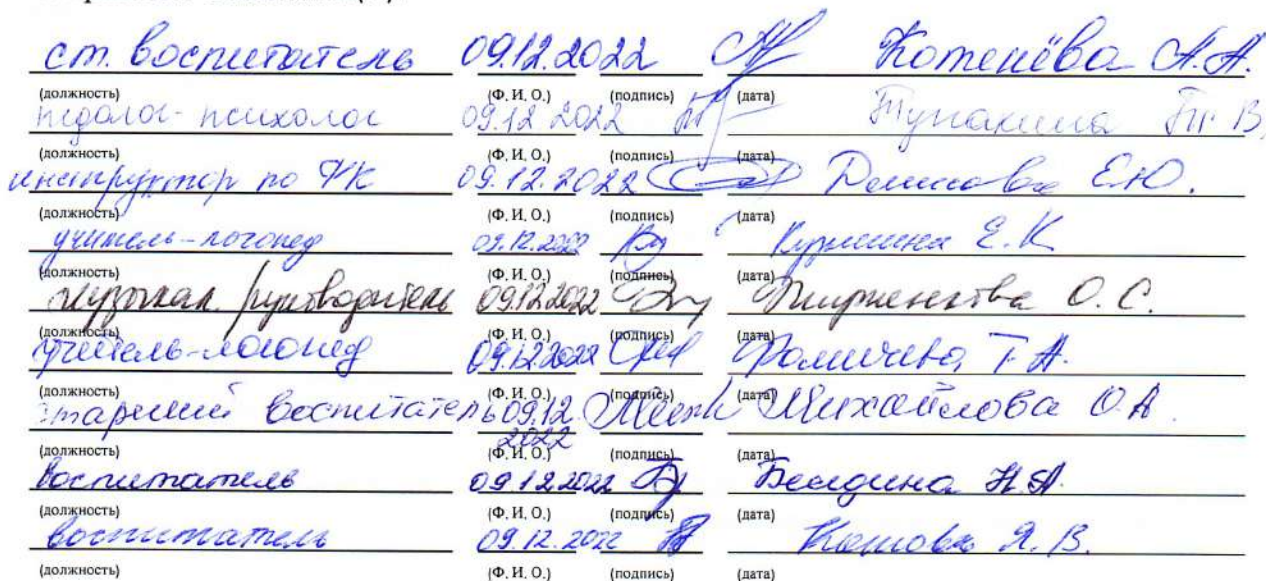 ст. воспитатель 09.12.2022 Котенёва А.А.
(должность) (Ф. И. О.) (подпись) (дата)
педагог-психолог 09.12 2022 Тупакина В.
(должность) (Ф. И. О.) (подпись) (дата)
инструктор по ФК 09.12.2022 Денисова Е.Ю.
(должность) (Ф. И. О.) (подпись) (дата)
учитель-логопед 09.12.2022 Е.К
(должность) (Ф. И. О.) (подпись) (дата)
музыкал. руководитель 09.12.2022 О.С.
(должность) (Ф. И. О.) (подпись) (дата)
учитель-логопед 09.12.2022 Фомичева Т.А.
(должность) (Ф. И. О.) (подпись) (дата)
старший воспитатель 09.12. Михайлова О.А
2022
(должность) (Ф. И. О.) (подпись) (дата)
воспитатель 09.12.2022 Н.А.
(должность) (Ф. И. О.) (подпись) (дата)
воспитатель 09.12.2022 Я.В.
(должность) (Ф. И. О.) (подпись) (дата)